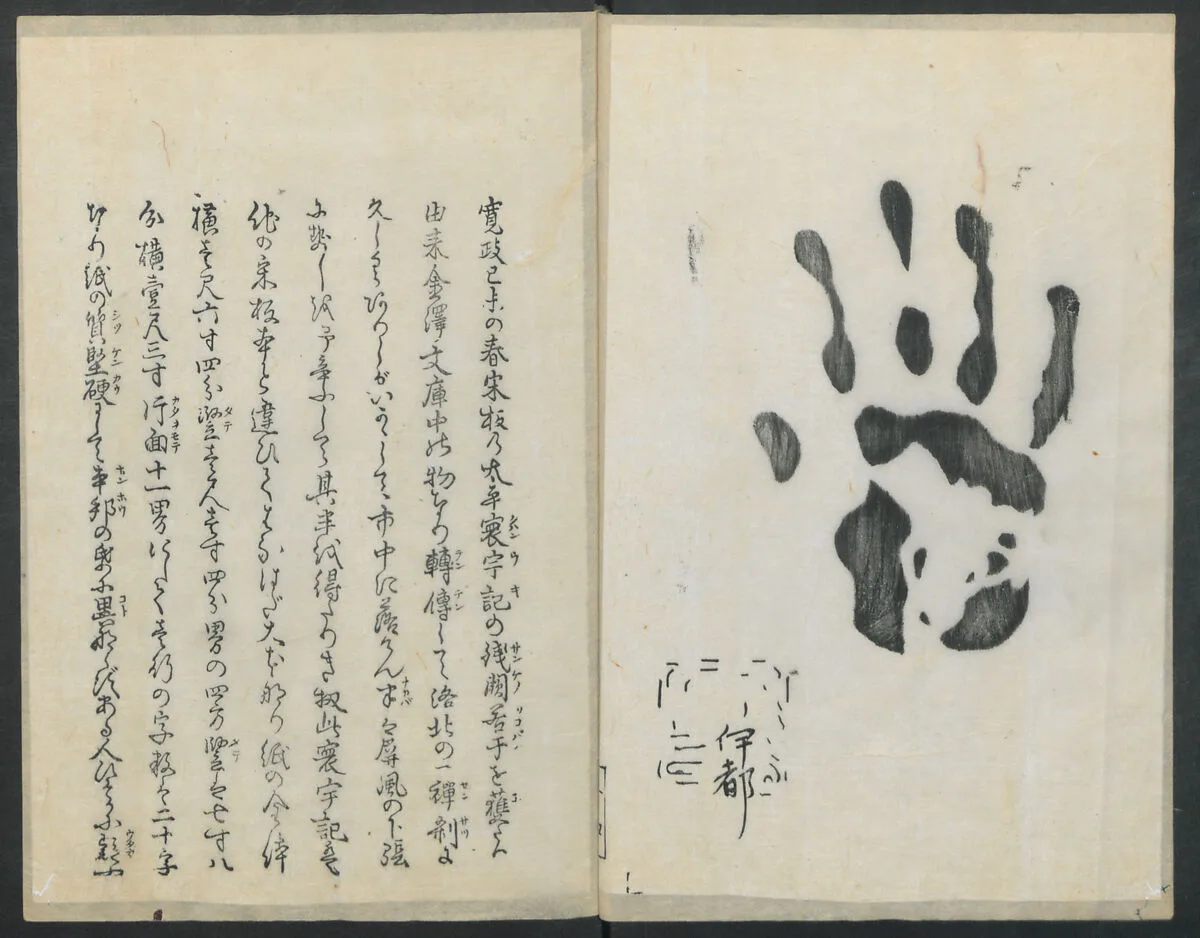 伊都
寛政己未の春宋板乃太平寰宇記の残闕若干を獲たり
由来金澤文庫中の物なり轉傳して洛北の一禪刹に
久しくありしがいかゝして市中に落けん半は屏風の下張
に弊しを予幸にして其半を得たりき扨此寰宇記は
他の宋板本と違ひてはなはだ大本なり紙の全体
横壹尺六寸四分竪壹尺壹寸四分界の四方竪は七寸八
分横壹尺三寸片面十一界にして壹行の字数は二十字
なり紙の質堅硬にして本邦のに異ならずある人ひそかに疑ふ